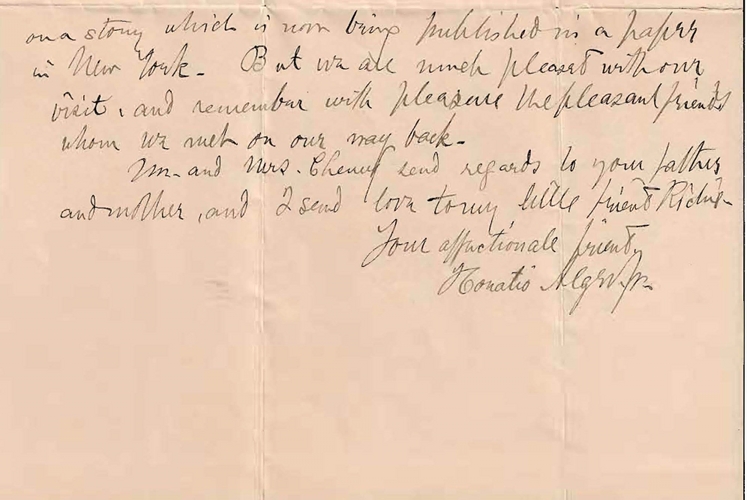 on a story which is now being published in a paper
in New York. But we are much pleased with our
visit, and remember with pleasure the pleasant friends
whom we met on our way back.
Mr. and Mrs. Cheney send regards to your father
and mother, and I send love to my little friend Richie.
Your affectionate friend,
Horatio Alger, Jr.